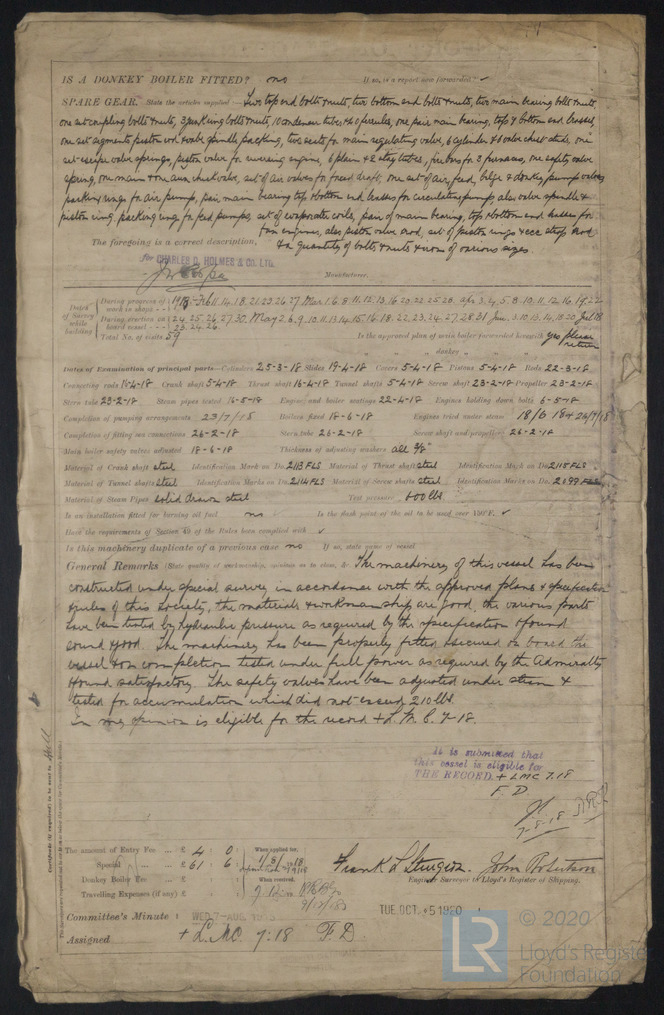 IS A DONKEY BOILER FITTED? no If so, is a report now forwarded? ✓
SPARE GEAR. State the articles supplied:— Two top end bolts & nuts, two bottom end bolts & nuts, two main bearing bolts & nuts
one set coupling bolts & nuts, 3 junk ring bolts & nuts, 10 condenser tubes & 40 ferrules, one pair main bearing, top & bottom end brasses,
one set segments piston rod & valve spindle packing, two seats for main regulating valve, 6 cylinder & 6 valve chest studs, one
set escape valve springs, piston valve for reversing engine, 6 plain & 2 stay tubes, fire bars for 3 furnaces, one safety valve
spring, one main & one aux. check valve, set of air valves for forced draft, one set of air, feed, bilge & donkey pump valves
packing rings for air pump, pair main bearing top & bottom end brasses for circulating pump also valve spindle &
piston ring, packing ring for feed pumps, set of evaporator coils, pair of main bearing, top & bottom end brasses for
fan engines, also piston valve rod, set of piston rings & ecc strap and
The foregoing is a correct description, & a quantity of bolts & nuts & iron of various sizes
for CHARLES D. HOLMES & CO. LTD.
Manufacturer.
Dates of Survey while building
During progress of work in shops - - 1918 Feb 11. 14. 18. 21. 23. 26. 27 Mar 1. 6. 8. 11. 12. 13. 16. 20. 22. 25. 28. Apr 3. 4. 5. 8. 10. 11. 12. 16. 19. 22
During erection on board vessel - - - 24. 25. 26. 27. 30. May 2. 6. 9. 10. 11. 13. 14. 15. 16. 18. 22. 23. 24. 27. 28. 31 June 3. 10. 13. 14. 18. 20 Jul 18
23. 24. 26.
Total No. of visits 59 Is the approved plan of main boiler forwarded herewith yes please return
" " " donkey " " "
Dates of Examination of principal parts—Cylinders 25-3-18 Slides 19-4-18 Covers 5-4-18 Pistons 5-4-18 Rods 22-3-18
Connecting rods 15-4-18 Crank shaft 5-4-18 Thrust shaft 16-4-18 Tunnel shafts 5-4-18 Screw shaft 23-2-18 Propeller 23-2-18
Stern tube 23-2-18 Steam pipes tested 16-5-18 Engine and boiler seatings 22-4-18 Engines holding down bolts 6-5-18
Completion of pumping arrangements 23/7/18 Boilers fixed 18-6-18 Engines tried under steam 18/6/18 & 24/7/18
Completion of fitting sea connections 26-2-18 Stern tube 26-2-18 Screw shaft and propeller 26-2-18
Main boiler safety valves adjusted 18-6-18 Thickness of adjusting washers all 3/8"
Material of Crank shaft steel Identification Mark on Do. 2113 FLS Material of Thrust shaft steel Identification Mark on Do. 2115 FLS
Material of Tunnel shafts steel Identification Marks on Do. 2114 FLS Material of Screw shafts steel Identification Marks on Do. 2099 FLS
Material of Steam Pipes solid drawn steel Test pressure 600 lbs
Is an installation fitted for burning oil fuel no Is the flash point of the oil to be used over 150°F. ✓
Have the requirements of Section 49 of the Rules been complied with ✓
Is this machinery duplicate of a previous case no If so, state name of vessel
General Remarks (State quality of workmanship, opinions as to class, &c. The machinery of this vessel has been
constructed under special survey in accordance with the approved plans & specification
& rules of this Society, the materials & workmanship are good, the various parts
have been tested by hydraulic pressure as required by the specification & found
sound & good. The machinery has been properly fitted & secured on board the
vessel & on completion tested under full power as required by the Admiralty
& found satisfactory. The safety valves have been adjusted under steam &
tested for accumulation which did not exceed 210 lbs.
In my opinion is eligible for the record + L.M.C. 7-18.
It is submitted that
this vessel is eligible for
THE RECORD. + LMC 7.18
F D
7-8-18
Certificate (if required) to be sent to Hull
The amount of Entry Fee ... £ 4 : 0 : When applied for,
Special ... £ 61 : 6
Donkey Boiler Fee ... £ When received,
Travelling Expenses (if any) £
Frank L Sturgeon. John Robertson
Engineer Surveyor to Lloyd's Register of Shipping.
Committee's Minute WED. 7-AUG. 1918 TUE. OCT. 5 1920
Assigned + L.M.C. 7.18 F.D.
LR © 2020
Lloyd's Register
Foundation